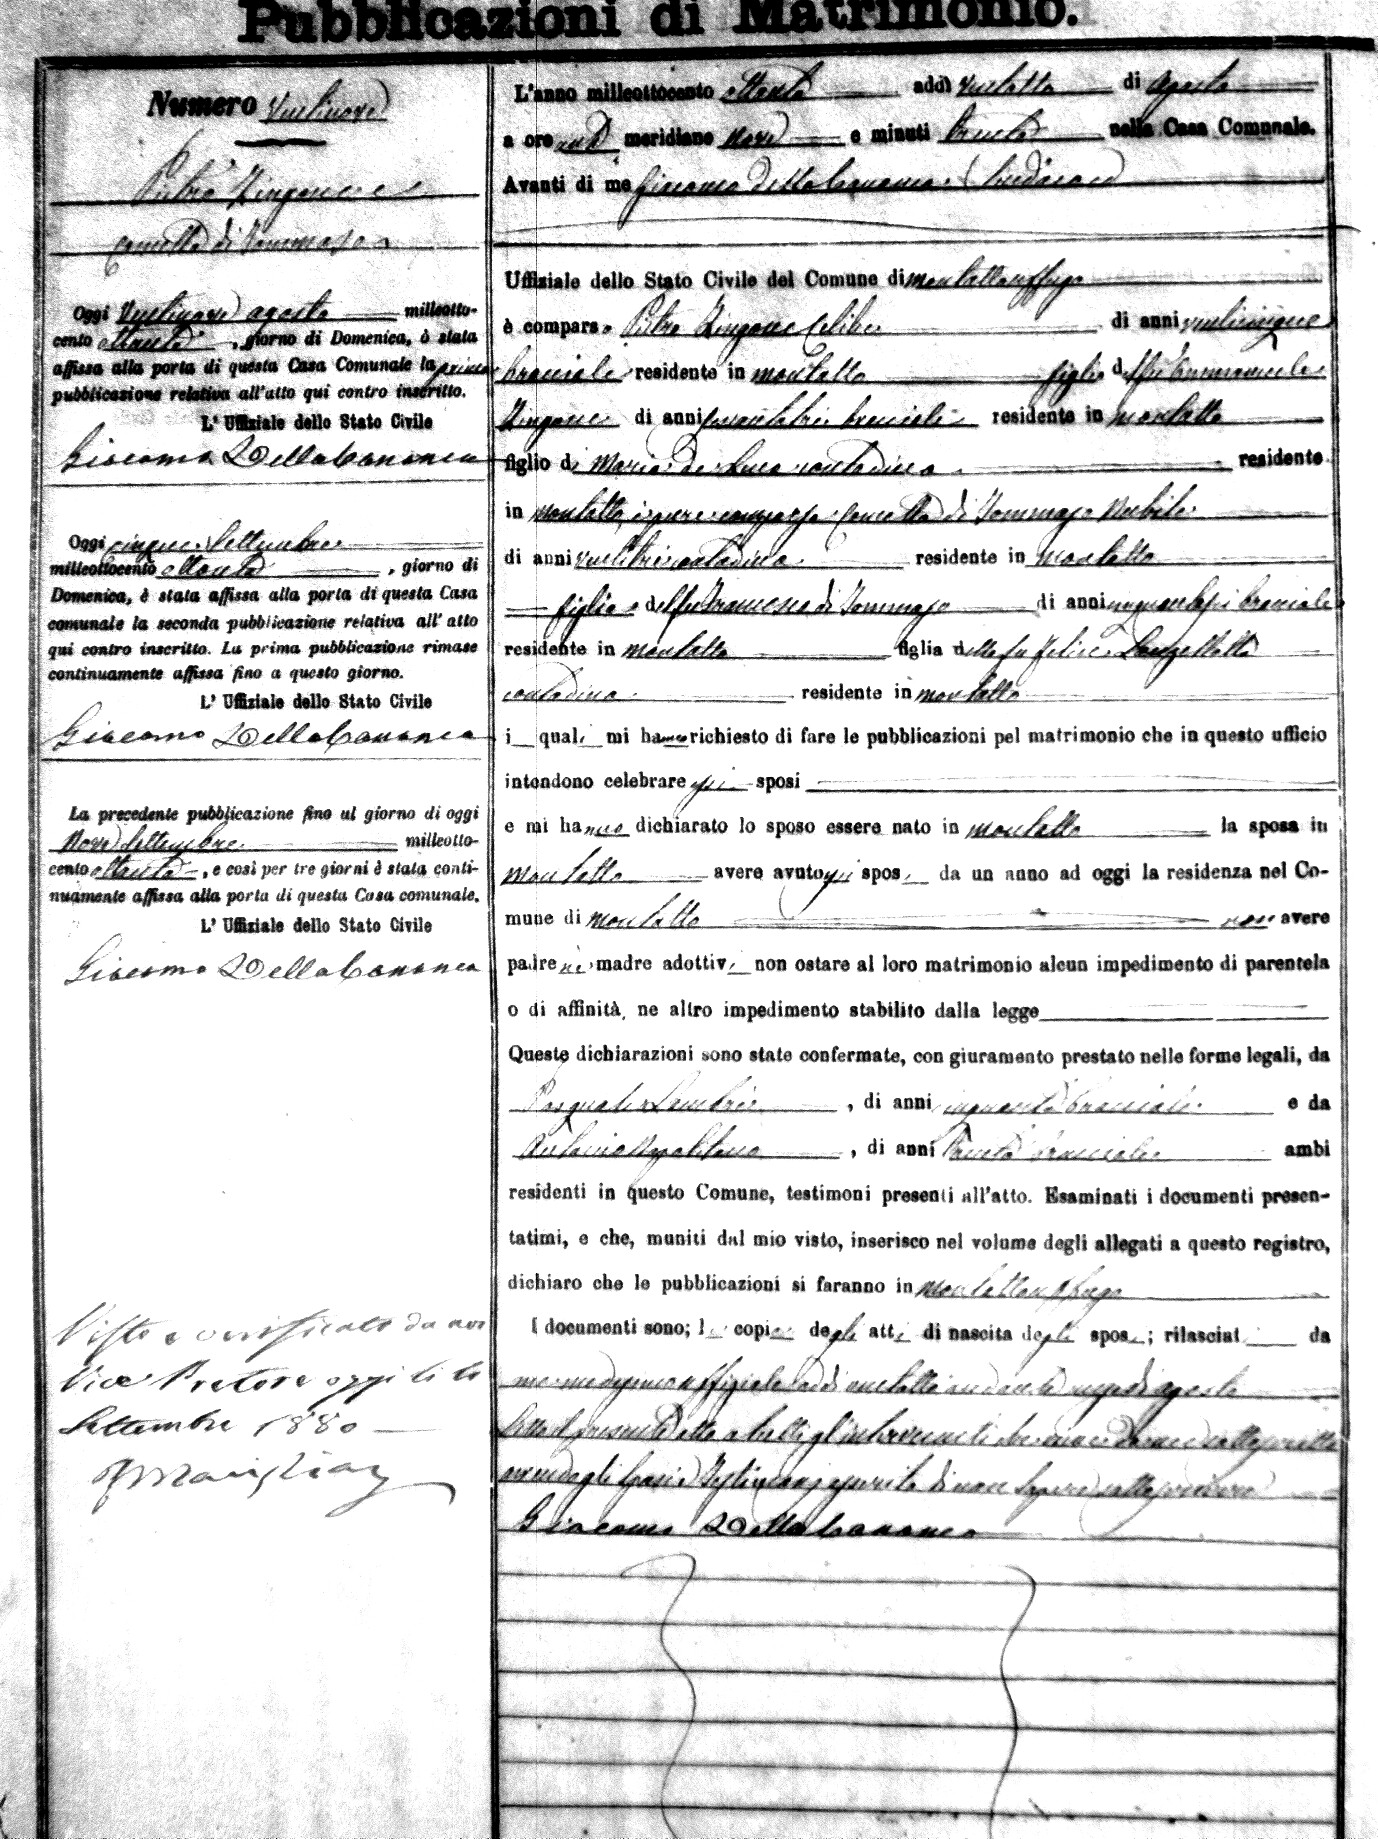 Pubblicazioni di Matrimonio.
Numero Ventinove
Pietro Zingone e
Concetta di Tommaso
Oggi Ventinove agosto milleotto-
cento ottanta, giorno di Domenica, è stata
affissa alla porta di questa Casa Comunale la prima
pubblicazione relativa all'atto qui contro inscritto.
L'Uffiziale dello Stato Civile
Giacomo Della Cananea
Oggi cinque Settembre
milleottocento ottanta, giorno di
Domenica, è stata affissa alla porta di questa Casa
comunale la seconda pubblicazione relativa all'atto
qui contro inscritto. La prima pubblicazione rimase
continuamente affissa fino a questo giorno.
L'Uffiziale dello Stato Civile
Giacomo Della Cananea
La precedente pubblicazione fino al giorno di oggi
Nove Settembre milleotto-
cento ottanta, e così per tre giorni è stata conti-
nuamente affissa alla porta di questa Casa comunale.
L'Uffiziale dello Stato Civile
Giacomo Della Cananea
Visto e verificato da noi
Vice Pretore oggi li
Settembre 1880
L'anno milleottocento ottanta addì ventotto di Agosto
a ore anti meridiane nove e minuti trenta nella Casa Comunale.
Avanti di me Giacomo Della Cananea Sindaco
Uffiziale dello Stato Civile del Comune di Montalto Uffugo
è comparso Pietro Zingone celibe di anni venticinque
bracciale residente in Montalto figlio del fu Emmanuele
Zingone di anni bracciale residente in Montalto
figlio di Maria de Luca contadina residente
in Montalto, è pure comparsa Concetta di Tommaso Nubile
di anni ventitre contadina residente in Montalto
figlia del fu Francesco di Tommaso di anni cinquantasei bracciale
residente in Montalto figlia della fu Felice Lanzellotta
contadina residente in Montalto
i quali mi hanno richiesto di fare le pubblicazioni pel matrimonio che in questo ufficio
intendono celebrare essi sposi
e mi hanno dichiarato lo sposo essere nato in Montalto la sposa in
Montalto avere avuto gli sposi da un anno ad oggi la residenza nel Co-
mune di Montalto non avere
padre nè madre adottivi non ostare al loro matrimonio alcun impedimento di parentela
o di affinità, ne altro impedimento stabilito dalla legge
Queste dichiarazioni sono state confermate, con giuramento prestato nelle forme legali, da
Pasquale, di anni cinquanta bracciale e da
Antonio Napolitano, di anni trenta bracciale ambi
residenti in questo Comune, testimoni presenti all'atto. Esaminati i documenti presen-
tatimi, e che, muniti dal mio visto, inserisco nel volume degli allegati a questo registro,
dichiaro che le pubblicazioni si faranno in Montalto Uffugo
I documenti sono; le copie degli atti di nascita degli sposi; rilasciati da
me medesimo uffiziale addì ventotto andante mese di agosto
Letto il presente atto a tutti gl'intervenuti sottoscritto
avendo gli sposi e testimoni asserito di non sapere sottoscrivere
Giacomo Della Cananea